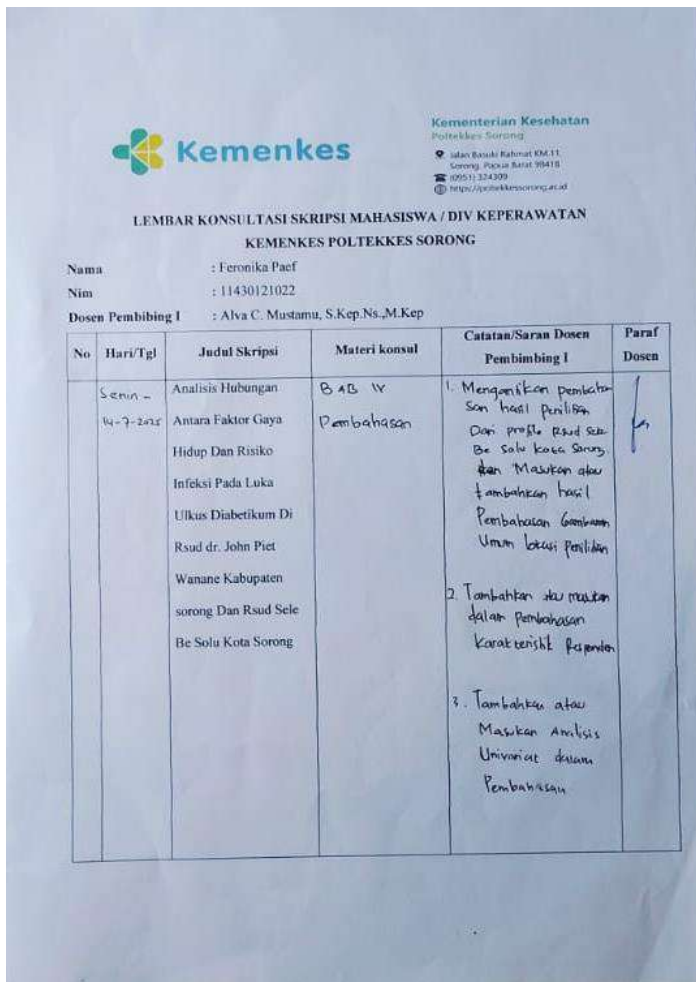 Kemenkes
Kementerian Kesehatan
Poltekkes Sorong
Jalan Basuki Rahmat KM.11
Sorong, Papua Barat 98418
(0951) 324309
https://poltekkessorong.ac.id
LEMBAR KONSULTASI SKRIPSI MAHASISWA / DIV KEPERAWATAN
KEMENKES POLTEKKES SORONG
Nama : Feronika Paef
Nim : 11430121022
Dosen Pembibing I : Alva C. Mustamu, S.Kep.Ns.,M.Kep
No
Hari/Tgl
Judul Skripsi
Materi konsul
Catatan/Saran Dosen
Pembimbing I
Paraf
Dosen
Senin -
14-7-2025
Analisis Hubungan
Antara Faktor Gaya
Hidup Dan Risiko
Infeksi Pada Luka
Ulkus Diabetikum Di
Rsud dr. John Piet
Wanane Kabupaten
sorong Dan Rsud Sele
Be Solu Kota Sorong
BAB IV
Pembahasan
1. Mengantikan pembaha
san hasil
Dari profile Rsud Sele
Be Solu Kota Sorong
dan Masukan atau
tambahkan hasil
Pembahasan Gambaran
Umum lokasi
2. Tambahkan atau masukan
dalam Pembahasan
Karakteristik Responden
3. Tambahkan atau
Masukan Analisis
Univariat dalam
Pembahasan